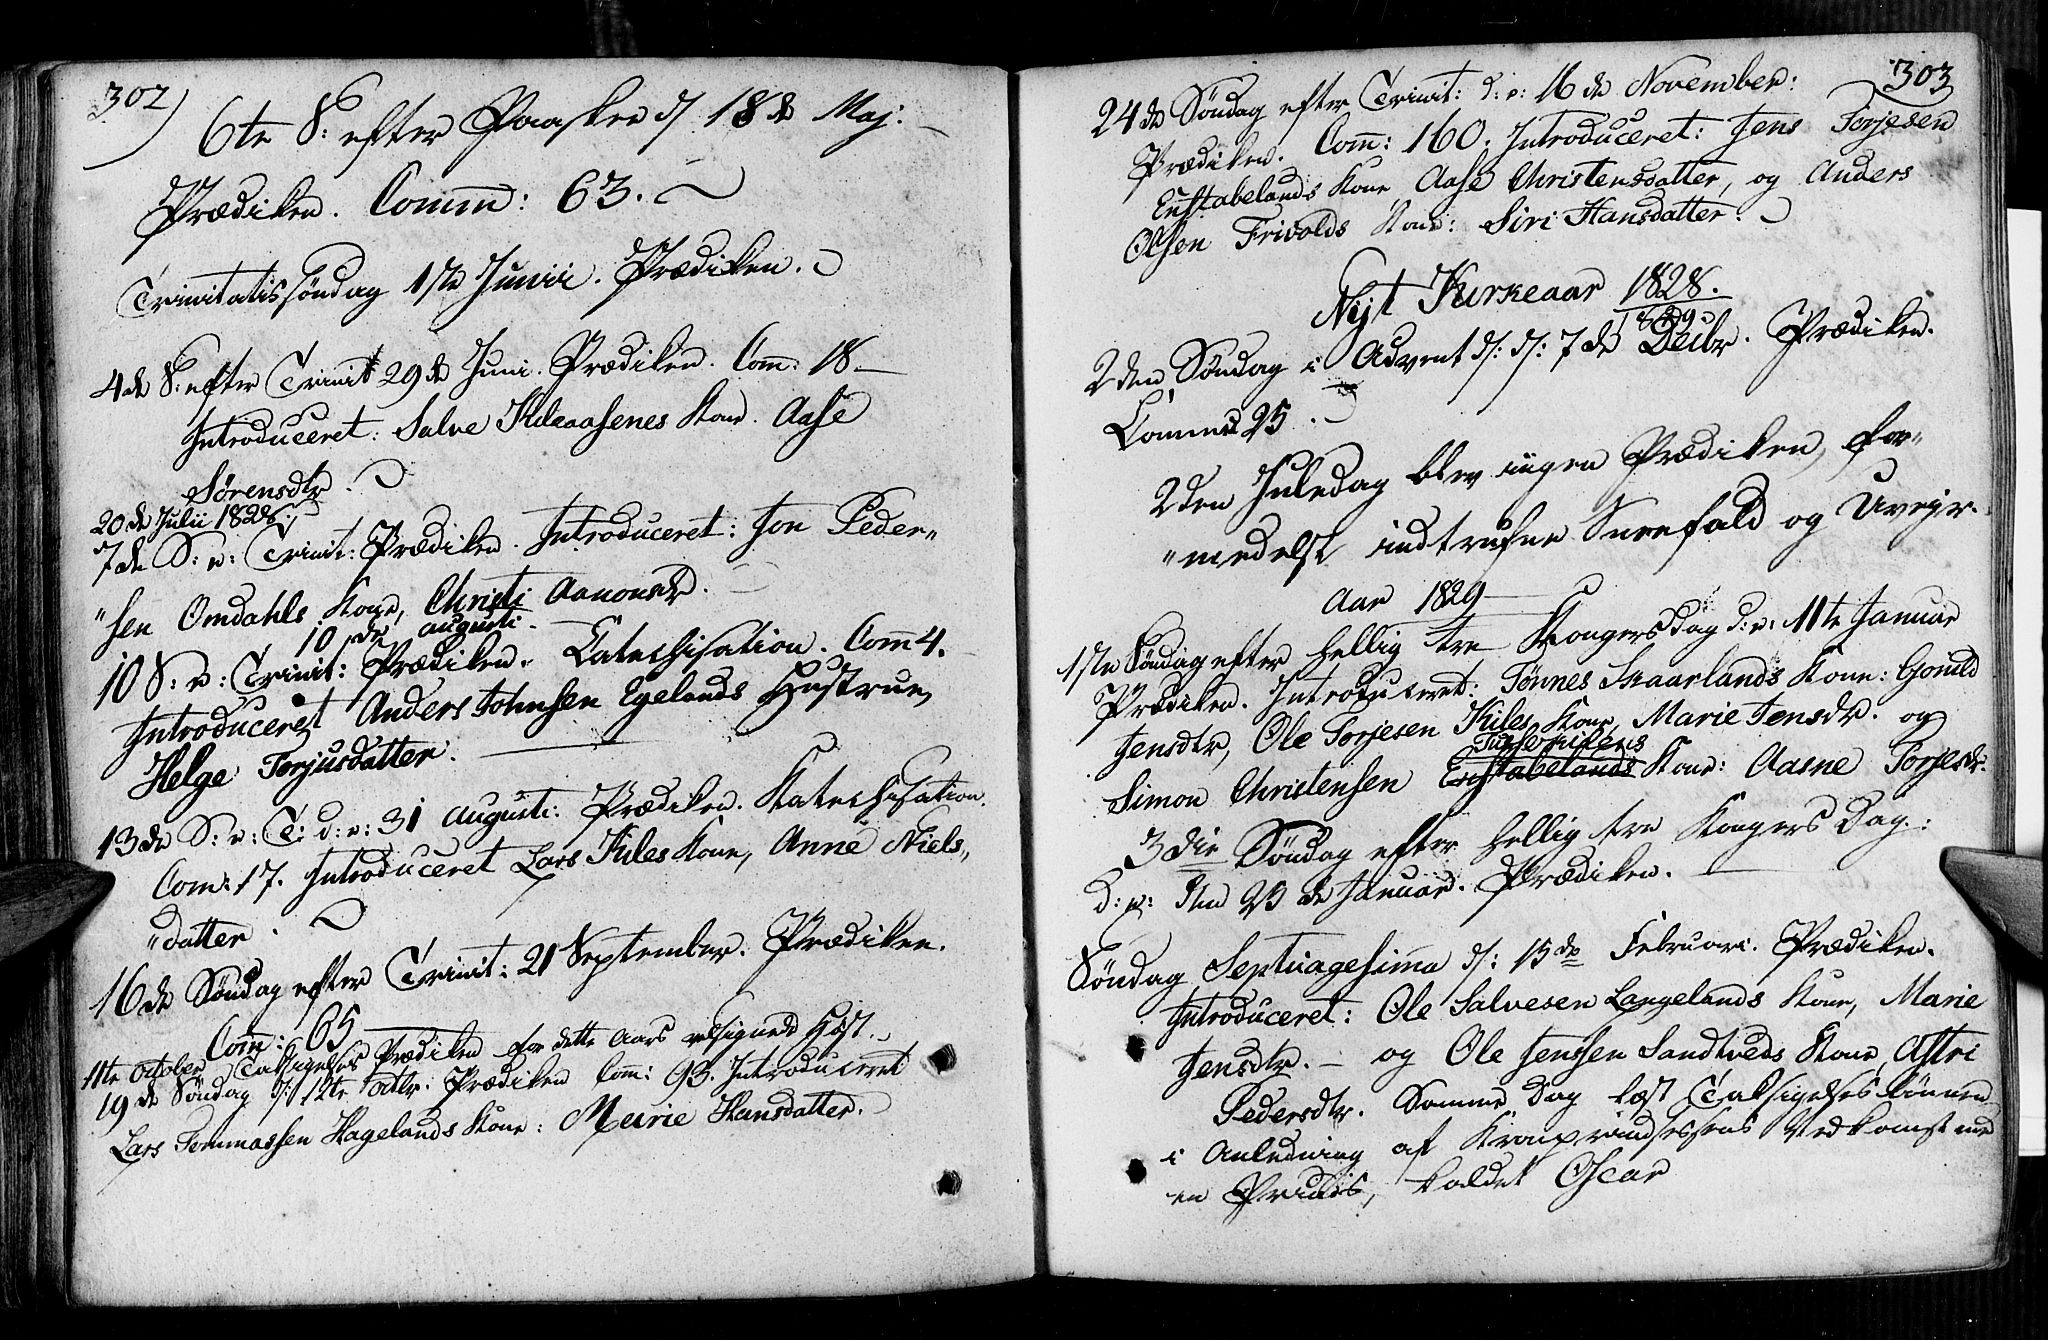 302)
6te S: efter Paaske d/ 18de Maj:
Prædiken. Comm: 63.
Trinitatissøndag 1ste Junii. Prædiken.
4de S: efter Trinit 29de Juni. Prædiken. Com: 18.
Introduceret: Salve Kileaasenes Kone. Aase
Sørensdtr.
20de Julii 1828:
7de S: e: Trinit: Prædiken. Introduceret: Jon Peder„
„sen Omdahls Kone, Christi Aanonsdr.
10de augusti
10 S: e: Trinit: Prædiken. Catechisation. Com 4.
Introduceret Anders Johnsen Egelands Hustrue,
Helge Torjusdatter.
13de S: e: T: d: e: 31 Augusti: Prædiken. Katechisation.
Com: 17. Introduceret Lars Kiles Kone, Anne Niels„
„datter.
16de Søndag efter Trinit: 21 September. Prædiken.
Com: 65
11te October Taksigelses Prædiken for dette Aars velsignede Høst.
19de Søndag d/ 12te Octbr: Prædiken Com: 93. Introduceret
Lars Tommassen Hagelands Kone: Marie Hansdatter.
303
24de Søndag efter Trinit: d: e: 16de November:
Prædiken. Com: 160. Introduceret: Jens Torjesen
Enstabelands Kone Aase Christensdatter, og Anders
Olsen Frivolds Kone: Siri Hansdatter.
Nyt Kirkeaar 1828.
1829.
2den Søndag i Advent d/: d/: 7de Decbr. Prædiken.
Commu 25.
2den Juledag blev ingen Prædiken, for„
„medelst indtrufne Sneefald og Uvejr.
Aar 1829
1ste Søndag efter hellig tre Kongersdag d: e: 11te Januar
Prædiken. Introduceret: Tønnes Skaarlands Kone: Gonild
Jensdtr, Ole Torjesen Kiles Kone Marie Jensdr. og
Simon Christensen Enstabelands Kone: Aasne Torjesdr.
3die Søndag efter hellig tre Kongers Dag:
D: e: den 25de Januar. Prædiken.
Søndag Septuagesima d/: 15de Februari. Prædiken.
Introduceret: Ole Salvesen Langelands Kone, Marie
Jensdtr. og Ole Jenssen Sandtveds Kone Astri
Pedersdtr. Samme Dag læst Taksigelsesbønnen
i Anledning af Kronprindsessens Nedkomst med
en Prinds, kaldet Oscar